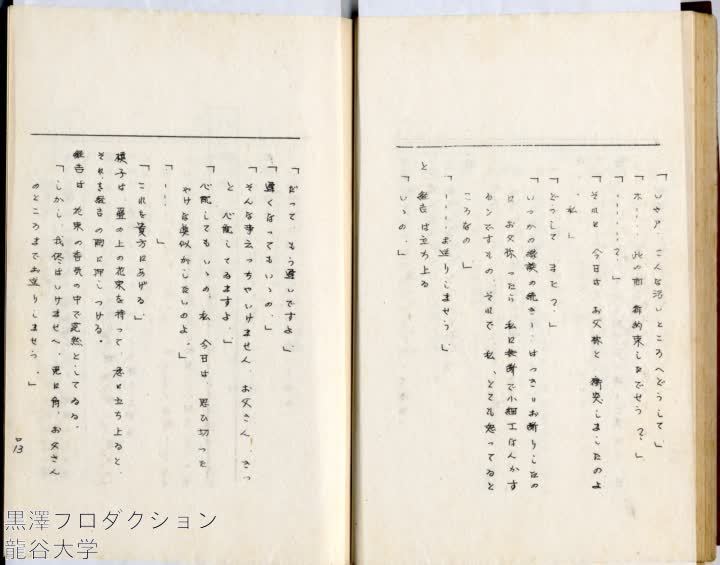 「いやァ、こんな汚いところへどうして」
「ホ・・・此の前お約束したでせう?」
「・・・・・・で、」
「それに 今日は お父様と 衝突しましたのよ
、私」
「どうして また?」
「いつかの縁談の続き・・・はっきりお断りしたの
に お父様ったら 私に無断で小細工なんかす
るンですもの、それで 私、とても怒ってると
ころなの」
「・・・・お送りしませう、」
と は立ち上る
「いゝの、」
「だって、もう遅いですよ」
「遅くなってもいゝの、」
「そんな事云っちゃいけません、お父さん、きっ
と 心配してゐますよ、」
「心配してもいゝの、私、今日は、思ひ切った
やけな真似がしたいのよ、」
「・・・」
「これを貴方にあげる」
子は 畳の上の花束を持って、急に立ち上ると、
それを の胸に押しつける。
は 花束の香気の中で茫然としてゐる。
「しかし、我儘はいけませんヘ、兎に角、お父さん
のところまでお送りしませう、」
ロ 13
黒澤プロダクション
龍谷大学